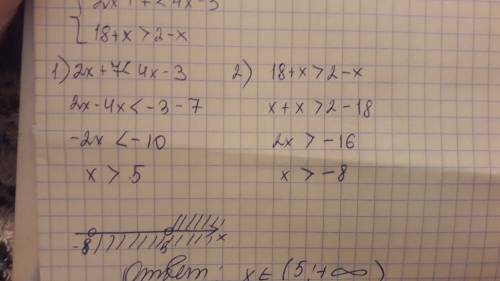 2x+7<4x-3
18+x>2-x
1) 2x+7<4x-3
2x-4x<-3-7
-2x<-10
x>5
2) 18+x>2-x
x+x>2-18
2x>-16
x>-8
-8 5 x
Ответ: x∈(5;+∞)